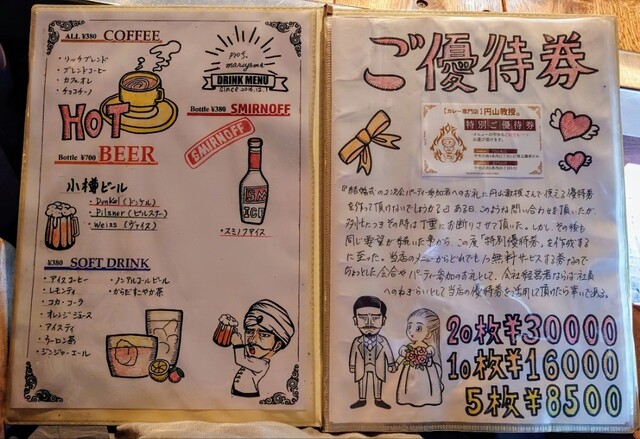 ALL ¥380 COFFEE
・リッチブレンド
・ブレンドコーヒー
・カフェオレ
・チョコチーノ
HOT
prof. maruyama
DRINK MENU
Since 2016.12.1
Bottle ¥380 SMIRNOFF
SMIRNOFF
ICE
・スミノフアイス
Bottle ¥700 BEER
小樽ビール
・Dunkel(ドンケル)
・Pilsner(ピルスナー)
・Weiss(ヴァイス)
¥380 SOFT DRINK
・アイスコーヒー
・レモンティ
・コカ・コーラ
・オレンジジュース
・アイスティ
・ウーロン茶
・ジンジャーエール
・ノンアルコールビール
・からだすこやか茶
ご優待券
【カレー専門店】円山教授。
特別ご優待券
『結婚式の2次会パーティ参加者へのお礼に円山教授さんで使える優待券
を作って頂けないでしょうか?』ある日、このような問い合わせを頂いたが
お引き合いその時は丁重にお断りさせて頂いた。しかし、その後も
同じ要望が続いた事から、この度「特別優待券」を作成する
に至った。当店のメニューからどれでも1つ無料サービスする券なので
ちょっとした会合やパーティ参加のお礼として、会社経営者ならば社員
へのねぎらいとして当店の優待券を活用して頂けたら幸いである。
20枚¥30000
10枚¥16000
5枚¥8500